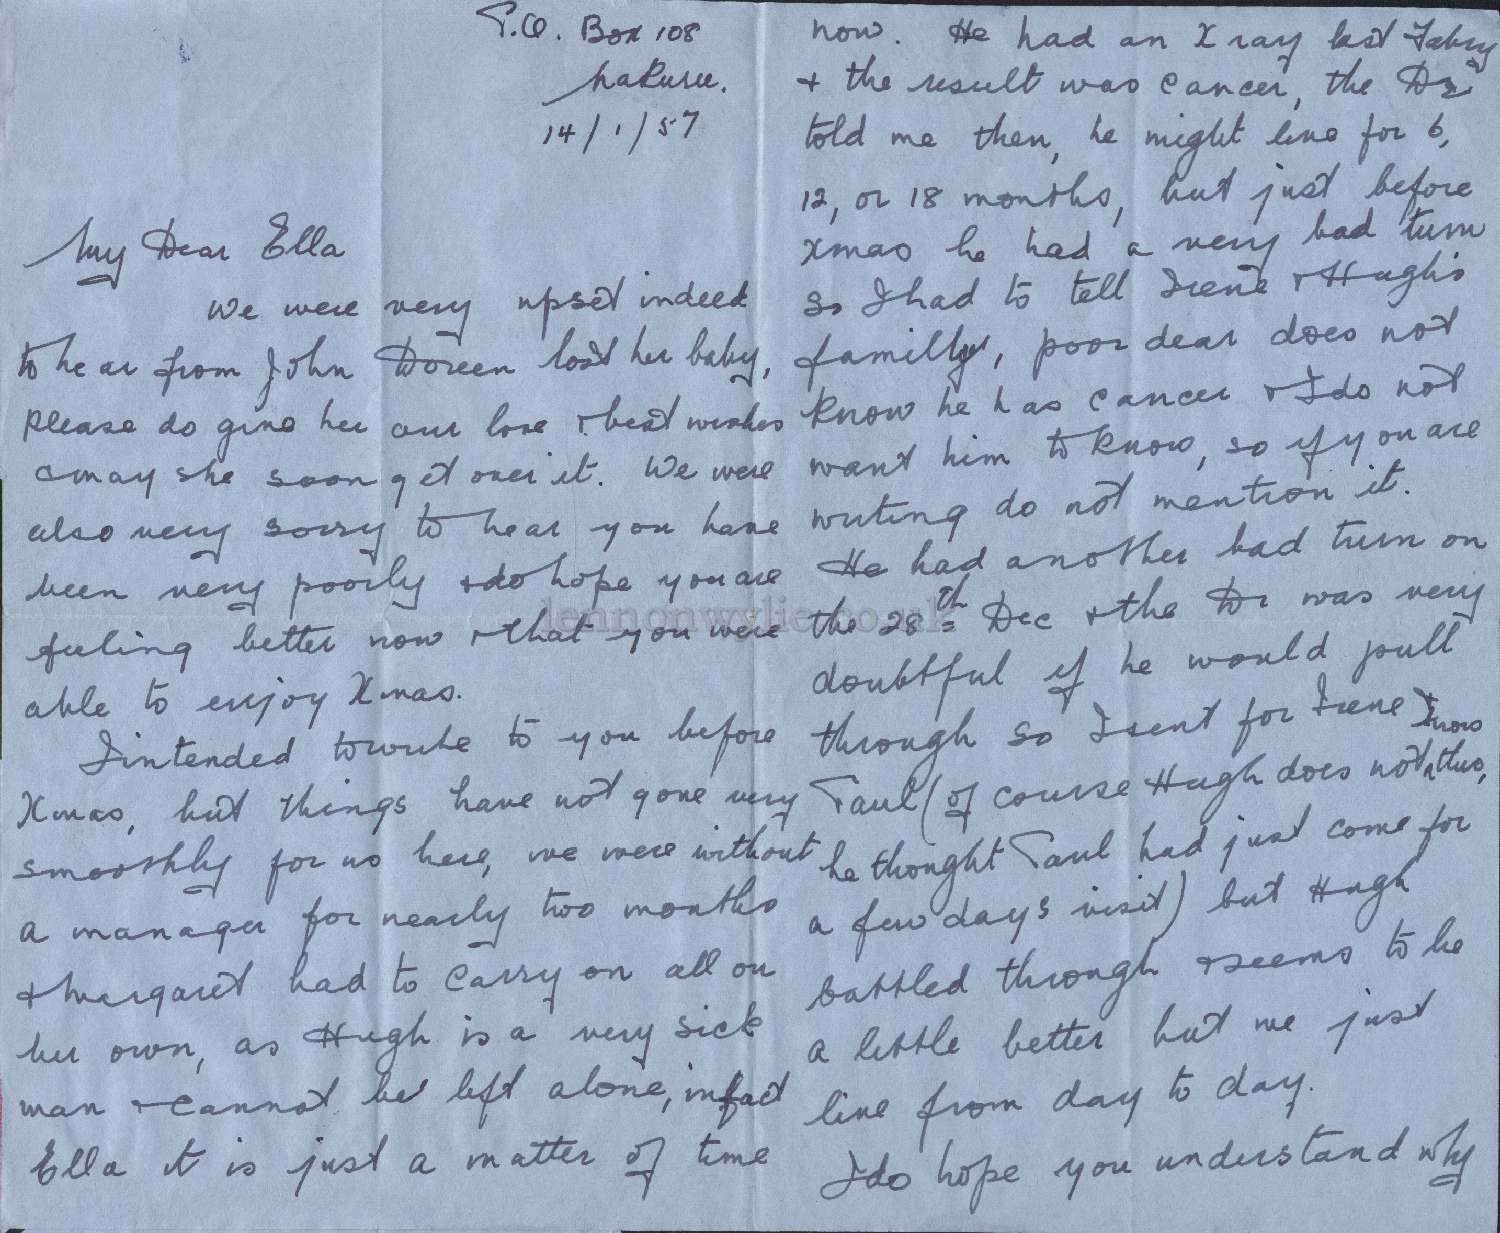 P.O. Box 108
Nakuru.
14/1/57
My Dear Ella
We were very upset indeed
to hear from John Doreen lost her baby,
Please do give her our love & best wishes
& may she soon get over it. We were
also very sorry to hear you have
been very poorly & do hope you are
feeling better now & that you were
able to enjoy Xmas.
I intended to write to you before
Xmas, but things have not gone very
smoothly for us here, we were without
a manager for nearly two months
& Margaret had to carry on all on
her own, as Hugh is a very sick
man & cannot be left alone, infact
Ella it is just a matter of time
now. He had an X ray last Febry
& the result was cancer, the Dr
told me then, he might live for 6,
12, or 18 months, but just before
Xmas he had a very bad turn
so I had to tell Irene & Hugh's
family, poor dear does not
know he has cancer & I do not
want him to know, so if you are
writing do not mention it.
He had another bad turn on
the 28th Dec & the Dr was very
doubtful if he would pull
through so I sent for Irene &
Paul (of course Hugh does not know this,
he thought Paul had just come for
a few days visit) but Hugh
battled through & seems to be
a little better but we just
live from day to day.
I do hope you understand why
lennonwylie.co.uk